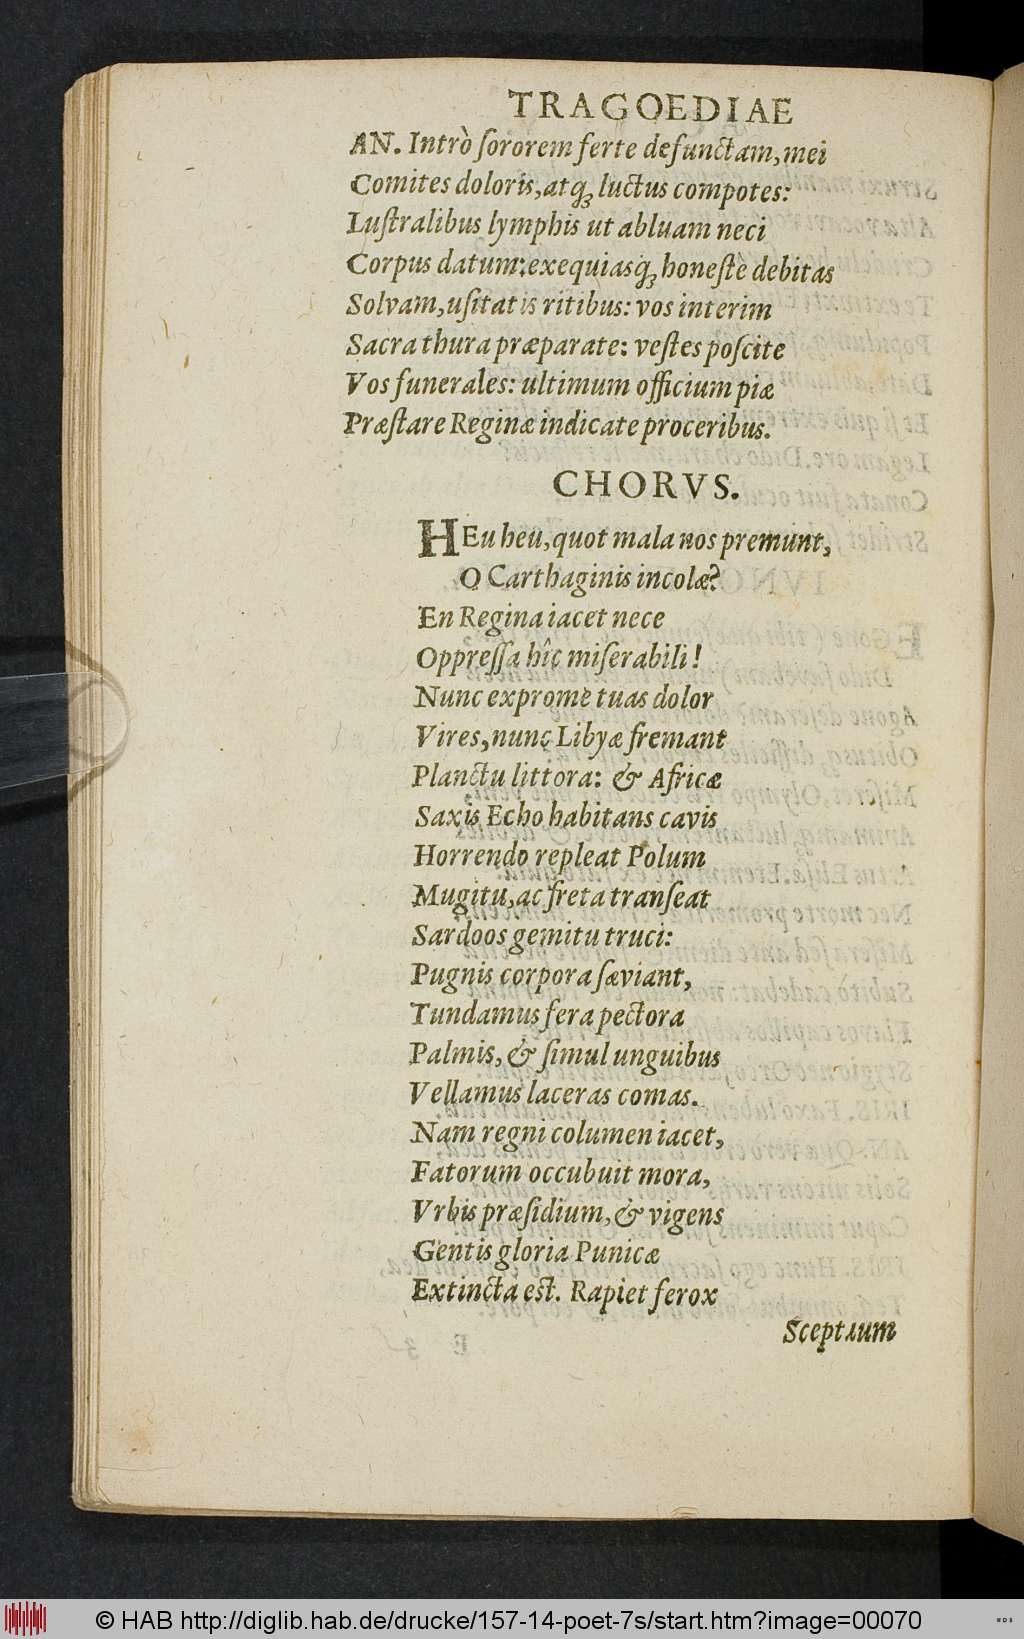 TRAGOEDIAE
AN. Intrò ſororem ferte defunctam, mei
Comites doloris, atq́; luctus compotes:
Luſtralibus lymphis ut abluam neci
Corpus datum: exequiasq́; honeſte debitas
Solvam, uſitatis ritibus: vos interim
Sacra thura præparate: veſtes poſcite
Vos funerales: ultimum officium piæ
Præſtare Reginæ indicate proceribus.
CHORVS.
HEu heu, quot mala nos premunt,
O Carthaginis incolæ?
En Regina iacet nece
Oppreſſa hîc miſerabili!
Nunc exprome tuas dolor
Vires, nunc Libyæ fremant
Planctu littora: & Africæ
Saxis Echo habitans cavis
Horrendo repleat Polum
Mugitu, ac freta tranſeat
Sardoos gemitu truci:
Pugnis corpora ſæviant,
Tundamus fera pectora
Palmis, & ſimul unguibus
Vellamus laceras comas.
Nam regni columen iacet,
Fatorum occubuit mora,
Vrbis præſidium, & vigens
Gentis gloria Punicæ
Extincta eſt. Rapiet ferox
Sceptrum
© HAB http://diglib.hab.de/drucke/157-14-poet-7s/start.htm?image=00070